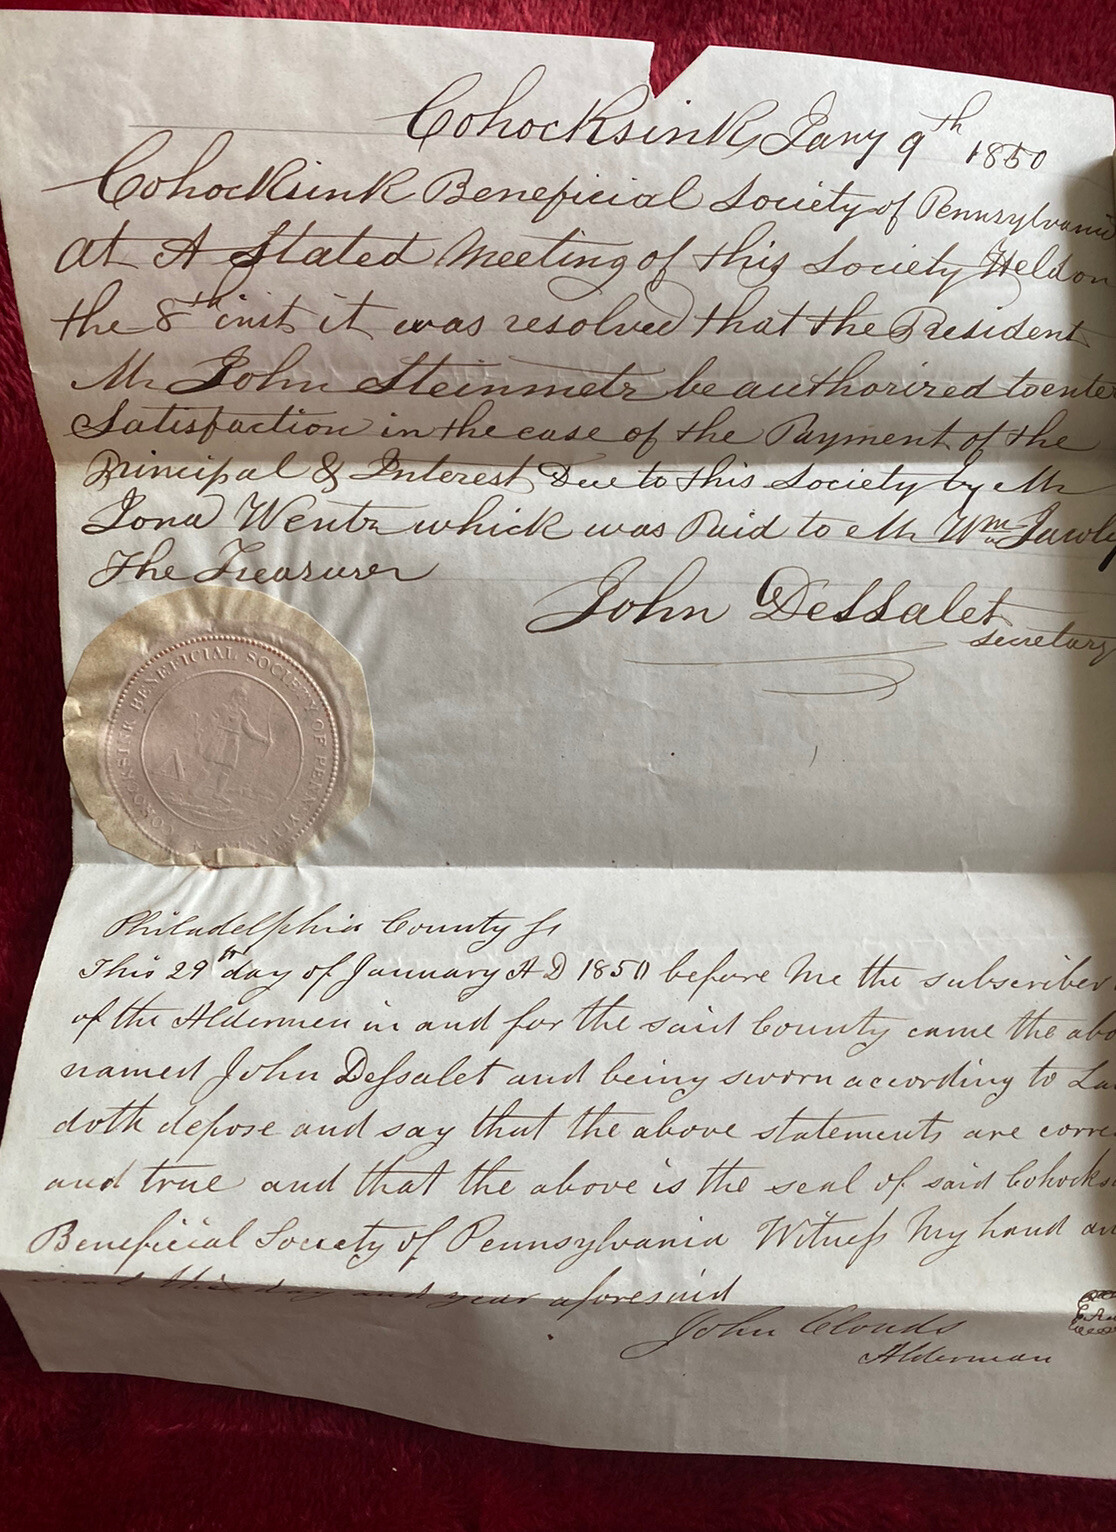 Cohocksink Jany 9th 1850
Cohocksink Beneficial Society of Pennsylvania
At A Stated Meeting of this Society Held on
the 8th inst it was resolved that the President
Mr John Steinmetz be authorized to ente
Satisfaction in the case of the Payment of the
Principal & Interest Due to this Society by Mr
Jona Wentz which was Paid to Mr Wm
The Treasurer
John DeSsalet
secretary
BENEFICIAL SOCIETY OF PENNSYLVANIA
Philadelphia County ss
This 29th day of January A D 1850 before me the subscriber
of the Aldermen in and for the said County came the abo
named John Dessalet and being sworn according to La
doth depose and say that the above statements are corre
and true and that the above is the seal of said Cohocks
Beneficial Society of Pennsylvania Witness My hand an
seal this day and year aforesaid
John Clouds
Alderman